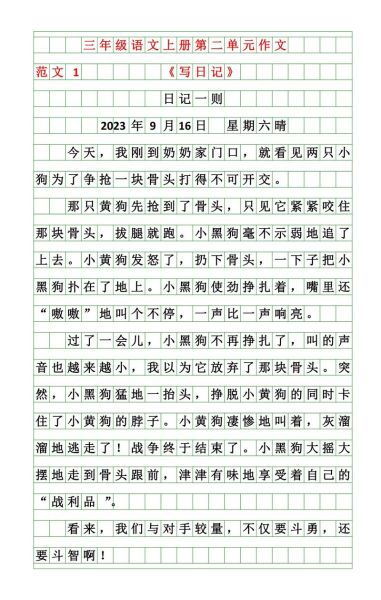 三年级语文上册第二单元作文
范文 1 《写日记》
日记一则
2023 年 9 月 16 日 星期六晴
今天，我刚到奶奶家门口，就看见两只小
狗为了争抢一块骨头打得不可开交。
那只黄狗先抢到了骨头，只见它紧紧咬住
那块骨头，拔腿就跑。小黑狗毫不示弱地追了
上去。小黄狗发怒了，扔下骨头，一下子把小
黑狗扑在了地上。小黑狗使劲挣扎着，嘴里还
“嗷嗷”地叫个不停，一声比一声响亮。
过了一会儿，小黑狗不再挣扎了，叫的声
音也越来越小，我以为它放弃了那块骨头。突
然，小黑狗猛地一抬头，挣脱小黄狗的同时卡
住了小黄狗的脖子。小黄狗凄惨地叫着，灰溜
溜地逃走了！战争终于结束了。小黑狗大摇大
摆地走到骨头跟前，津津有味地享受着自己的
“战利品”。
看来，我们与对手较量，不仅要斗勇，还
要斗智啊！